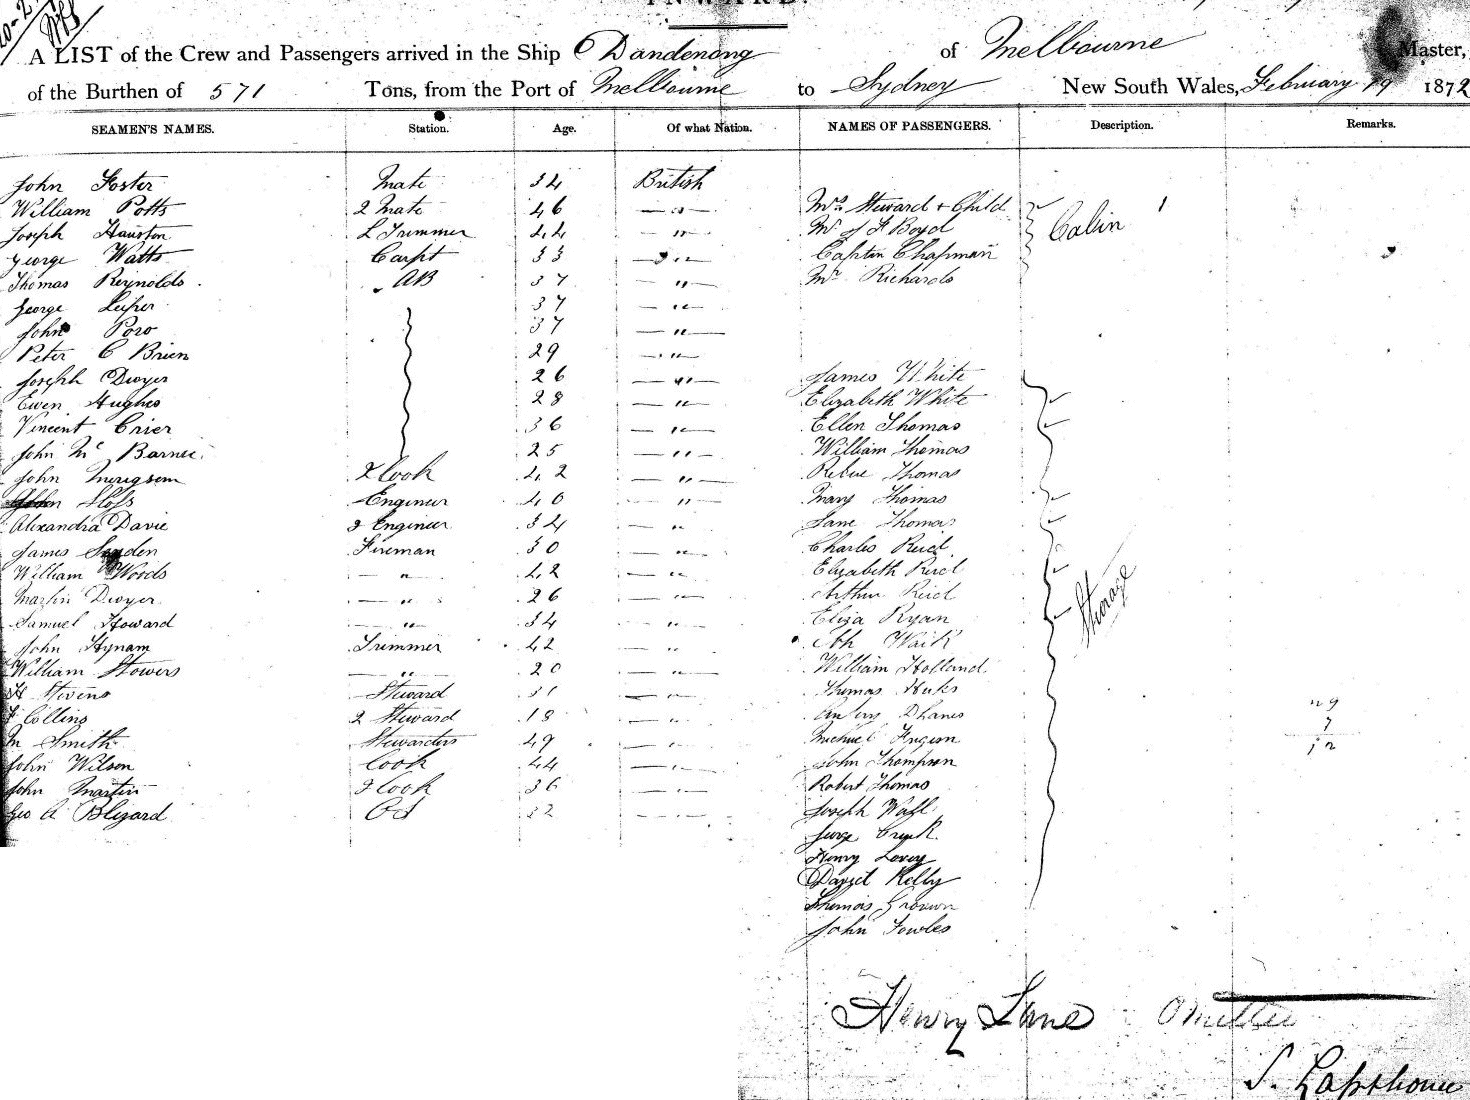 INWARD.
A LIST of the Crew and Passengers arrived in the Ship Dandenong of Melbourne Master,
of the Burthen of 571 Tons, from the Port of Melbourne to Sydney New South Wales, February 19 1872
SEAMEN'S NAMES. Station. Age. Of what Nation. NAMES OF PASSENGERS. Description. Remarks.
John Foster Mate 34 British
William Potts 2 Mate 46 — " — Mrs Steward + Child
Joseph Hauston L Trimmer 44 — " — Mr J F Boyd Cabin 1
George Watts Carpt 33 — " — Captin Chapman
Thomas Reynolds AB 37 — " — Mr Richards
George 37 — " —
John Poro 37 — " —
Peter O Brien 29 — " —
Joseph Dwyer 26 — " — James White
Ewen Hughes 28 — " — Elizabeth White
Vincent Crier 36 — " — Ellen Thomas
John Mc Barnee 25 — " — William Thomas
John 2 Cook 42 — " — Thomas
Engineer 40 — " — Mary Thomas
Alexandra Davie 2 Engineer 34 — " Jane Thomas
James Fireman 30 — " — Charles Reid
William Woods — " 42 — " — Elizabeth Reid
Martin Dwyer — " 26 — " — Arthur Reid
Samuel Howard — " — 34 — " Eliza Ryan
John Hynam Trimmer 42 — " Storage
William Stowers — " — 20 — " William Holland
H Stevens Steward 31 — " — Thomas
F Collins 2 Steward 18 — " — 9
M Smith 49 — " — Michael 7
John Wilson Cook 44 — " — John Thompson 12
John Martin 2 Cook 36 — " — Robert Thomas
Geo A Blizard OS 32 — " — Joseph Wall
George
Henry Lovey
Daniel Kelly
Thomas
John Fowles
Henry Lane O Miller
S. Lapthorne